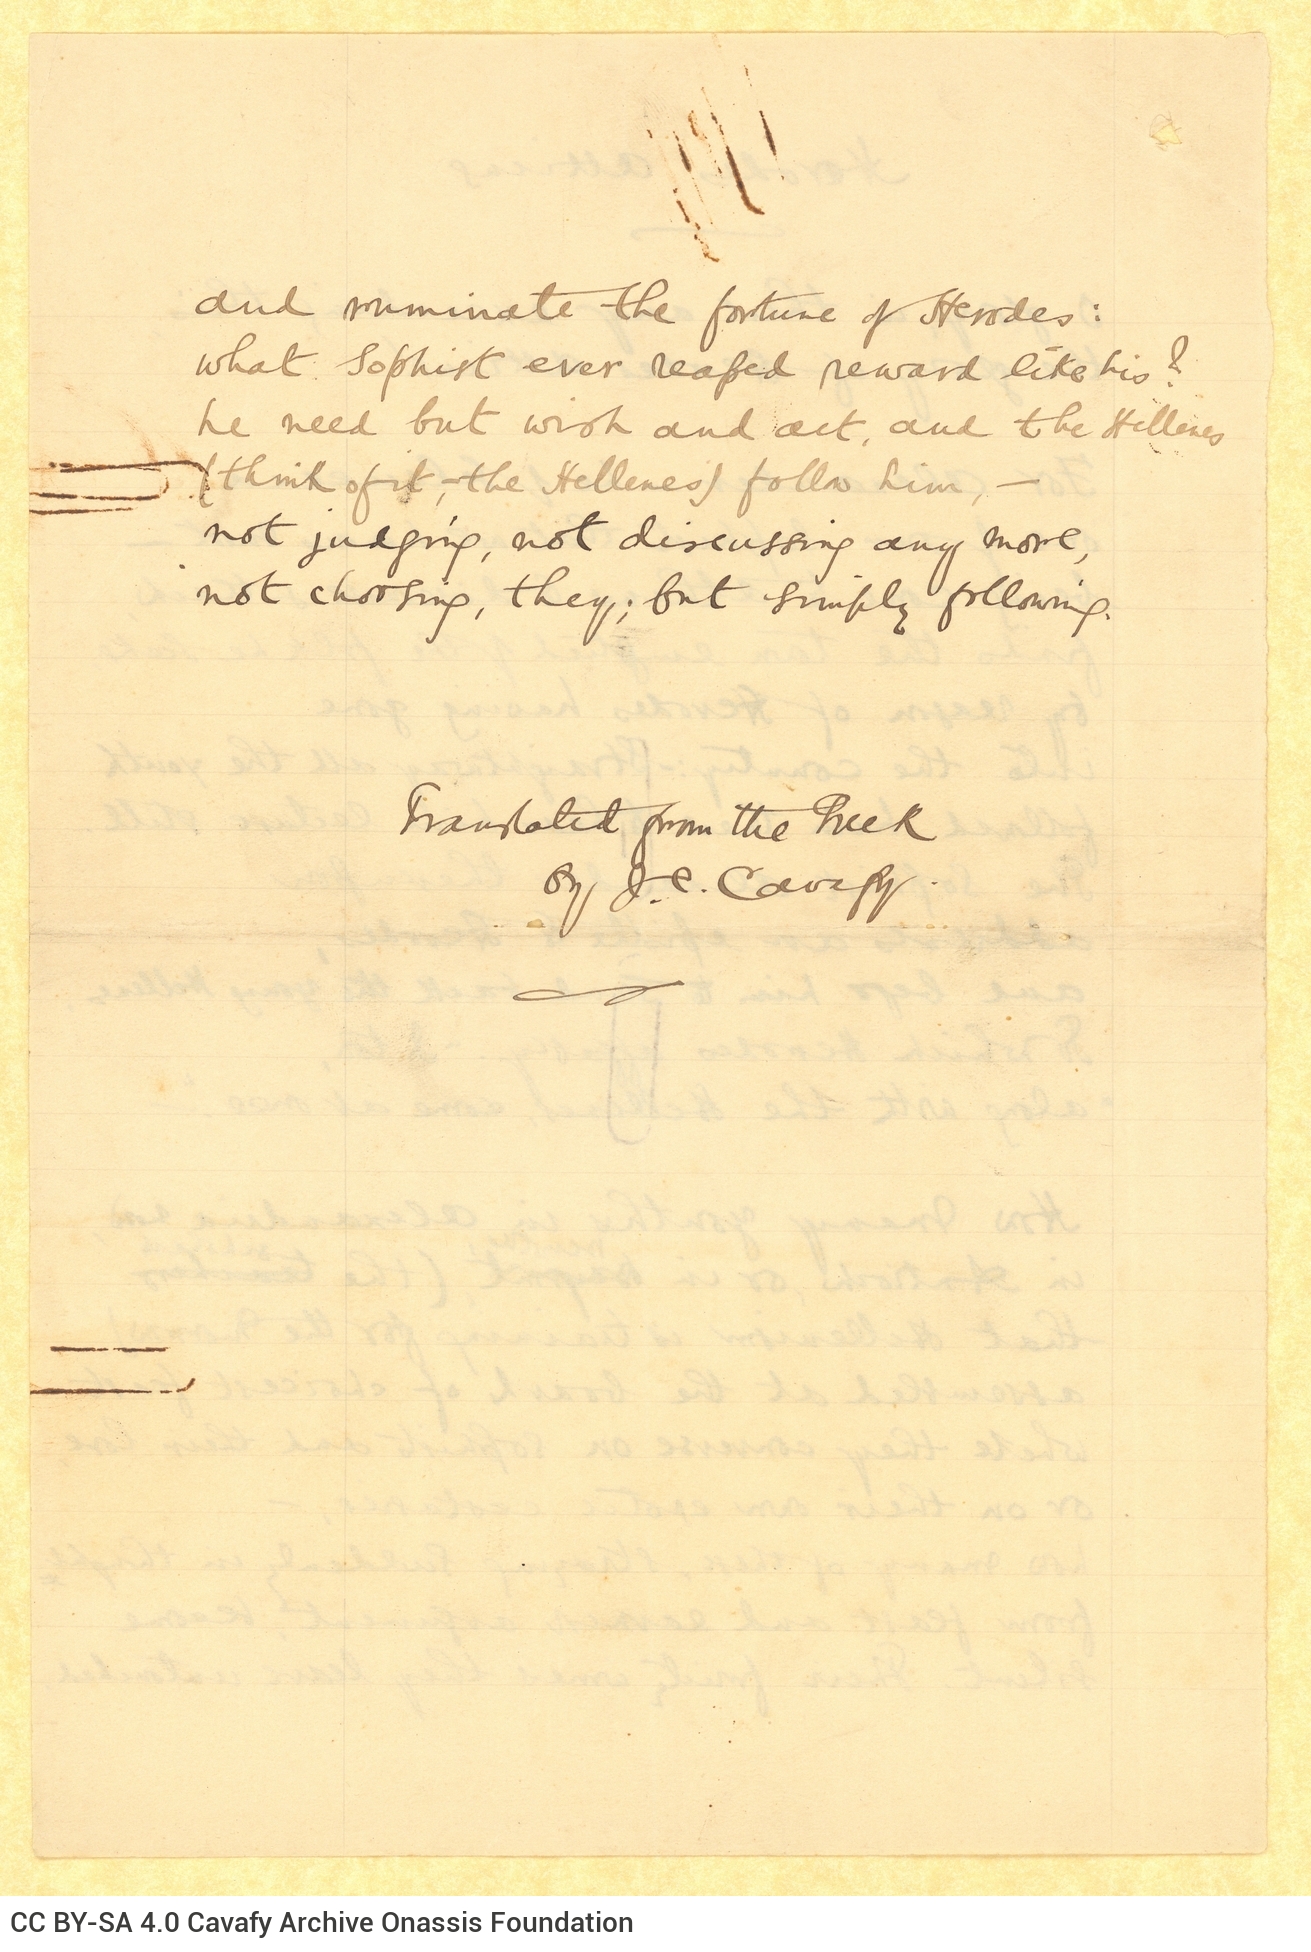 and ruminate the fortune of Herodes:
what Sophist ever reaped reward like his?
he need but wish and act, and the Hellenes
(think of it, the Hellenes) follow him, —
not judging, not discussing any more,
not choosing, they; but simply following.
Translated from the Greek
by J. C. Cavafy.
CC BY-SA 4.0 Cavafy Archive Onassis Foundation